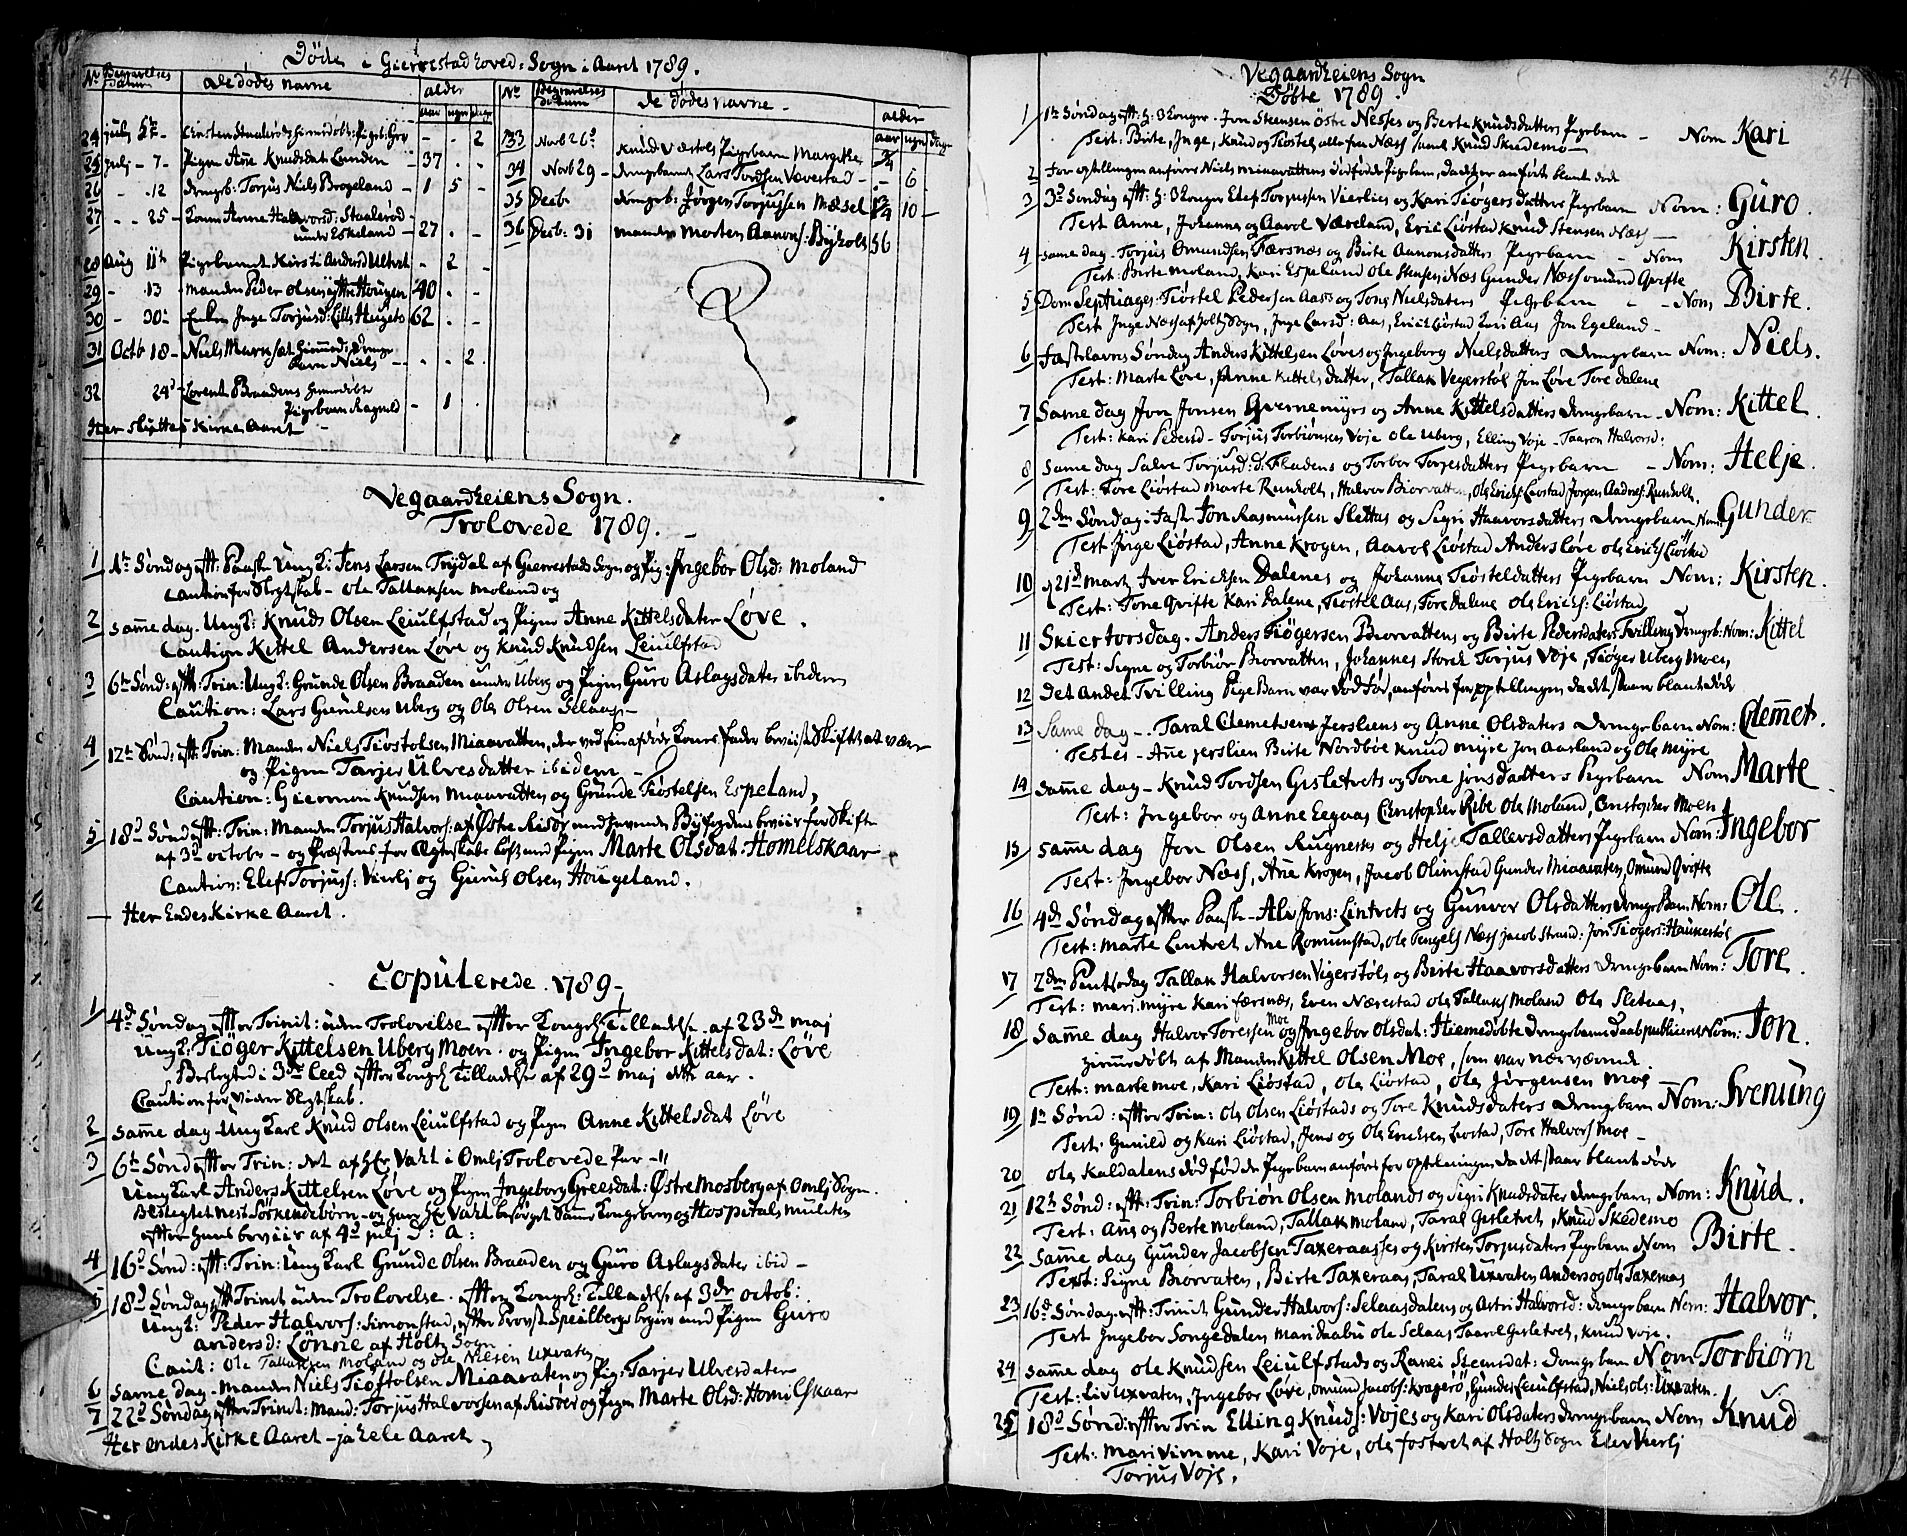 Døde i Gierrestad hoved: Sogn i Aaret 1789.
No Begravelses datum De Dødes navne alder
aar ugr dage
24 julj 5te Pigeb: Gro - - 2
25 julj - 7 - Pigen Anne Knudsdat Lunden 37 . -
26 - - 12 drengb: Torjus Niels Brogeland - 1 5 -
27 - - 25 - Kone Anne Halvorsd: Staalerød
under Eskeland - 27 . -
28 Aug 11te Pigebarnet Kirsti Andersd Ulltvet - 2 -
29 - 13 - manden Peder Olsen yttre Hougen 40 . -
30 - 30te Enken Inge Torjusd: Lille 62 . -
31 Octb 18 - Niels
Barn Niels - - . - 2
32 24d Lorents Braadens hiemdøbte
Pigebarn Ragnild - 1 .
Her sluttes Kirke Aaret -
No Begravelses datum De dødes navne - alder
aar ugr dage
133 Novb 26de Knud Pigebarn Margithe 3/4
34 Novb 29 - drengebarnet Lars Tordsen Vevestad - . - 6 -
35 Decb drengeb: Jørgen Torjussen Mæsel 10 -
36 Decb: 31 manden Morten Aanons: Byholt 56
Vegaardheiens Sogn.
Trolovede 1789. -
1 1te Søndag efft: Paaske Ungk: Jens Larsen Trydal af Gierrestads Sogn og Pig: Ingebor Olsd: Moland
Caution for Slegtskab - Ole Tallaksen Moland og
2 samme dag. Ungk: Knud Olsen Leiulfstad og Pigen Anne Kittelsdater Løve.
Caution Kittel Andersen Løve og Knud Knudsen Leiulfstad
3 6te Sønd: efft: Trin: Ungk: Grunde Olsen Braaden under Uberg og Pigen Guro Aslagsdater ibidem
Caution: Lars Uberg og Ole Olsen Selaas -
4 12te Sønd: efft: Trin: Manden Niels Tiøstolsen Miaavatten, der ved sin afdøde Kones Fader beviiste Skiftet at være
og Pigen Tarjer Ulvesdatter ibidem -
Caution: Giermon Knudsen Miaavatten og Grunde Tiøstelsen Espeland,
5 18d Sønd efft: Trin: Manden Torjus Halvors: af Østre Risør med havende Byfogdens beviis for Skifte
af 3d octobr - og Præstens for Ægteskabs løfte med Pigen Marte Olsdat: Homelskaar
Caution: Elef Torjuss: Vierlj og Guruf Olsen Hougeland.
- Her Endes Kirke Aaret.
Copulerede 1789 -
1 4de Søndag efter Trinit: uden Trolovelse effter Kongel: Tilladelse af 23de maj
Ungk: Tiøger Kittelsen Uberg Moen. og Pigen Ingebor Kittelsdat: Løve
Beslegted i 3die Leed effter Kongel Tilladelse af 29d maj dette aar.
Caution for videre Slegtskab.
2 samme dag Ung Karl Knud Olsen Leiulfstad og Pigen Anne Kittelsdat Løve
3 6te Sønd effter Trin: det af Hr Vahl i Omlj Trolovede Par -
Ung Karl Anders Kittelsen Løve og Pigen Ingeborg Greesdat: Østre Mosberg af Omlj Sogn.
Beslegtet nest Sørkendebørn - og har Hr Vahl besørget Samme Kongebrev og Hospitals mulcten
effter hans beviis af 4de julj S: A:
4 16d Sønd: efft: Trin: Ung Karl Grunde Olsen Braaden og Guro Aslagsdater ibid -
5 18d Søndag efft Trinit uden Trolovelse. effter Kongel: Tilladelse af 3de octob:
Ungk: Peder Halvors: Simonstad, effter Provst Speilbergs beviis med Pigen Guro
Andersd: Lønne af Holtz Sogn
Caut: Ole Tallaksen Moland og Ole Nilsen Uxvaten
6 samme dag - manden Niels Tiøstolsen Miaavaten og Pig: Tarjer Ulvesdater
7 22d Søndag effter Trinit: Mand: Torjus Halvorsen af Risøer og Pigen Marte Olsd: Homelskaar
Her endes Kirke Aaret - ja hele Aaret -
54
Vegaardheiens Sogn
Døbte 1789.
1 1te Søndag efft: H: 3 Konger. Jon Steensen Østre Nesses og Berte Knudsdatters Pigebarn - Nom Kari
Test: Birte, Inge, Knud og Tiøstel alle fra Næss samt Knud Skedemo -
2 for optellingen anføres Niels Miaavattens Dødfødde Pigebarn, da det er anført blant døde
3 3de Søndag efft: H: 3 Konger Elef Torjussen Vierlies og Kari Tiøgersdatters Pigebarn Nom: Guro.
Test Anne, Johanne og Aavol Væreland, Eric Liøstad Knud Stensen Næss -
4 samme dag - Torjus Omundsen Færsnæs og Birte Aanonsdatters Pigebarn - Nom Kirsten
Test: Birte Moland, Kari Espeland Ole Stensen, Næs Gunder Næss Omund Qvifte
5 Dom Septuages: Tiøstel Pedersen Aass og Tons Nielsdaters Pigebarn - - Nom Birte.
Test Inge Næss af Holtz Sogn, Inge Larsd: Aas, Erick Liøstad Kari Aas Jon Egeland -
6 fastelavns Søndag Anders Kittelsen Løves og Ingeborg Nielsdatters drengebarn Nom: Niels.
Test: Marte Løve, Anne Kittelsdatter, Tallak Vegerstøl Jon Løve Tore Dalene
7 Samme dag Jon Jonsen Qvernemyrs og Anne Kittelsdatters drengebarn - Nom: Kittel
Test: Kari Pedersd - Torjus Torbiørnsen Voje Ole Uberg, Elling Voje - Taaron Halvorsd:
8 samme dag Salve Torjusd: d: Fladens og Torbor Torjesdatters Pigebarn - Nom: Helje.
Test: Tore Liøstad Marte Runholt, Halvor Biorvatten, Ole Erichs: Liøstad Jørgen Aadnes: Runholt.
9 2den Søndag i Faste Jon Rasmussen Slettas og Sigri Haavorsdatters drengebarn Nom: Gunder.
Test: Inge Liøstad, Anne Krogen, Aavol Liøstad Anders Løve Ole Erichs: Liøstad
10 d 21d Martz Iver Ericksen Dalenes og Johanne Tiøsteldatters Pigebarn Nom: Kirsten.
Test: Tone Qvifte Kari Dalene, Tiøstel Aas, Tore Dalene Ole Erichs: Liøstad
11 Skiertorsdag. Anders Tiøgersen Biorvattens og Birte Pedersdaters Tvilling Drengeb: Nom: Kittel
Test: Signe og Torbiør Biorvatten, Johannes Storck Torjus Voje, Tiøger Uberg Moen,
12 det Andet Tvilling Pige Barn var dødfød, anføres for optellingen da det staar blant døde
13 Same dag - Taral Clemetsens Jersliens og Anne Olsdaters Drengebarn Nom: Clemet.
Testes - Ane Jerslien Birte Nordbøe Knud Myre Jon Aarland og Ole Myre
14 samme dag - Knud Tordsen Gislevets og Tone Jonsdatters Pigebarn Nom Marte
Test: Ingebor og Anne Eegaas Christopher Ribe Ole Moland, Christopher Moen
15 samme dag Jon Olsen Rugneses og Helje Tallersdatters Pigebarn Nom: Ingebor
Test: Ingebor Næss, Ane Krogen, Jacob Olimstad Gunder Miaavaten, Omund Qvifte
16 4de Søndag effter Paaske - Alv Jons: Lintvets og Gunvor Olsdatters drenge Barn Nom: Ole.
Test: Marte Lintvet Ane Romundstad, Ole Tengels Næss Jacob Strand: Jon Tiøgers: Haukestøl
17 2den Pentsedag Tallak Halvorsen Vigerstøls og Birte Haavorsdatters drengebarn Nom: Tore.
Test: Mari Myre Kari Færsnæs, Even Nærestad Ole Tallaks Moland Ole Sletaas,
18 Samme dag Halvor Toressen Moe og Ingebor Olsdat: Hiemedøbte drengebarns Daab publiceret Nom: Jon.
hiemedøbt af Manden Kittel Olsen Moe, som var nærværende.
Test: Marte Moe, Kari Liøstad, Ole Liøstad, Ole Jørgensen Moe -
19 1te Sønd: effter Trin: Ole Olsen Liøstads og Tore Knudsdaters Drengebarn Nom: Svenung
Test: Gunild og Kari Liøstad, Jens og Ole Ericksen Liøstad, Tore Halvors Moe -
20 Ole Kaldatens død fødde Pigebarn anføres for optelningen da det staar blant døde
21 12te Sønd: efft: Trin: Torbiørn Olsen Molands og Sigri Knudsdater drengebarn Nom: Knud.
Test: Ane og Berte Moland, Tallak Moland, Taral Gisletvet, Knud Skedemo
22 Samme dag Gunder Jacobsen Taxeraasses og Kirsten Torjusdaters Pigebarn Nom Birte.
Text: Signe Biorvaten, Birte Taxeraas, Taral Uxvaten Anders og Ole Taxeraas
23 16de Søndag efft: Trinit Gunder Halvors: Selaasdalens og Astri Halvorsd: drengebarn Nom: Halvor.
Test Ingebor Songedalen Mari Daabu Ole Selaas Taarol Gisletvet, Knud Voje.
24 samme dag Ole Knudsen Leiulfstads og Ranei Steensdat: drengebarn Nom Torbiørn
Test: Liv Uxvaten, Ingebor Løve, Omund Jacobs: Kragerø, Gunder Leiulfstad, Niels Ols: Uxvaten.
25 18d Sønd: effter Trin Elling Knuds: Vojes og Kari Olsdaters Drengebarn Nom Knud
Test: Mari Vimme, Kari Voje, Ole Fostvet af Holtz Sogn Elev Vierlj
Torjus Voje.